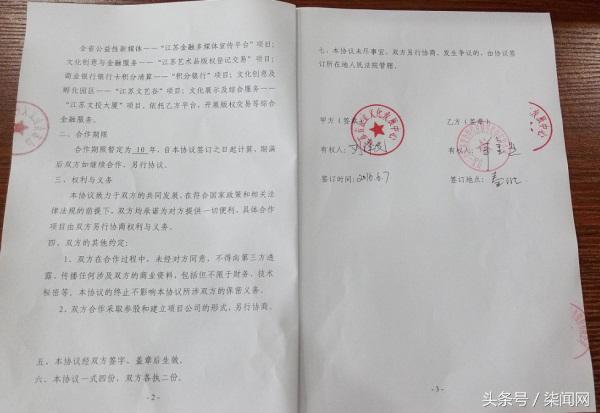 全省公益性新媒体——“江苏金融多媒体宣传平台”项目;
文化创意与金融服务——“江苏艺术品版权登记交易”项目;
商业银行银行卡积分清算——“积分银行”项目; 文化创意及
孵化园区——“江苏文艺谷”项目; 文化展示及综合服务——
“江苏文投大厦”项目, 依托乙方平台, 开展版权交易等综合
金融服务。
二、合作期限
合作期限暂定为 10 年, 自本协议签订之日起计算, 期满
后双方如继续合作, 另行协议。
三、权利与义务
本协议致力于双方的共同发展, 在符合国家政策和相关法
律法规的前提下, 双方均承诺为对方提供一切便利, 具体合作
项目由双方另行协商权利与义务。
四、双方的其他约定:
1、双方在合作过程中, 未经对方同意, 不得向第三方透
露、传播任何涉及双方的商业资料, 包括但不限于财务、技术
秘密等。本协议的终止不影响本协议所涉双方的保密义务。
2、双方合作采取参股和建立项目公司的形式, 另行协商。
五、本协议经双方签字、盖章后生效。
六、本协议一式四份, 双方各执二份。
- 2 -
七、本协议未尽事宜, 双方另行协商, 发生争议的, 由协议签
订所在地人民法院管辖。
甲方(签章)
乙方(签章)
有权人:
有权人:
签订时间: 2016.6.7
签订地点:
- 3 -
头条号 / 柒闻网